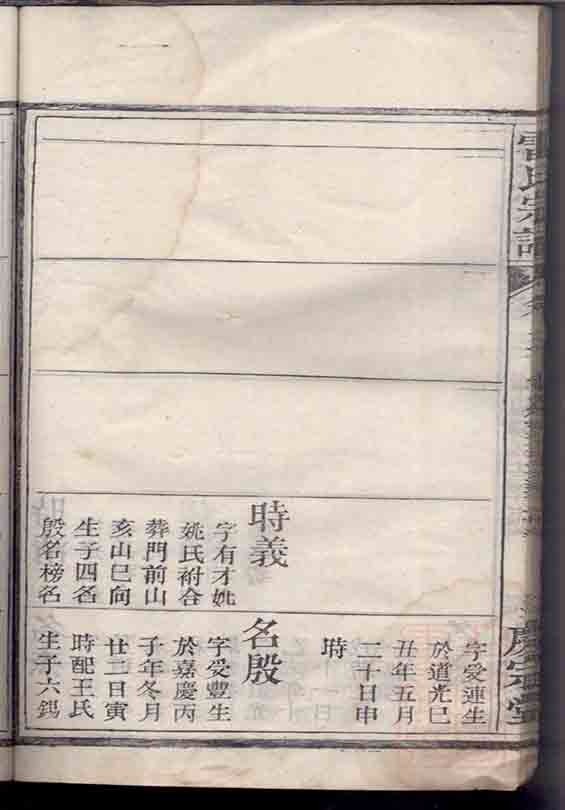 雷氏宗譜
慶宗堂
時義
字有才姚
姚氏祔合
葬門前山
亥山巳向
生子四名
殷名榜名
字受連生
於道光巳
丑年五月
二十日申
時
名殷
字受豐生
於嘉慶丙
子年冬月
廿二日寅
時配王氏
生子六錫